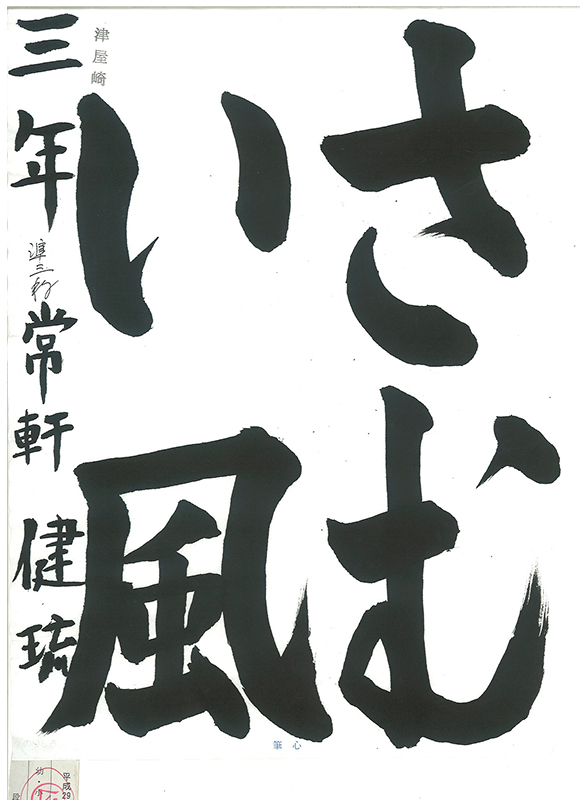 さむ
い風
津屋崎
三年 準三級 常軒 健琉
心筆
平成29
幼・小
段